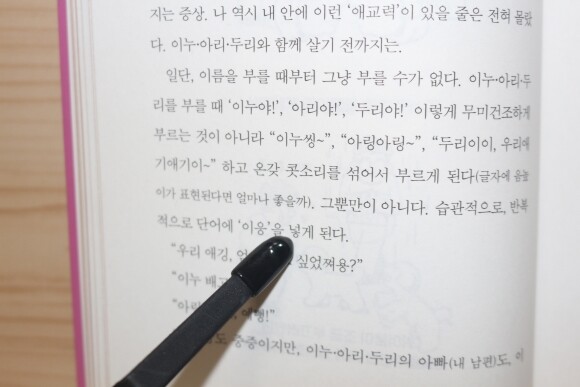 지는 증상. 나 역시 내 안에 이런 ‘애교력’이 있을 줄은 전혀 몰랐
다. 이누·아리·두리와 함께 살기 전까지는.
일단, 이름을 부를 때부터 그냥 부를 수가 없다. 이누·아리·두
리를 부를 때 ‘이누야!’, ‘아리야!’, ‘두리야!’ 이렇게 무미건조하게
부르는 것이 아니라 “이누씽~”, “아링아링~”, “두리이이, 우리애
기애기이~” 하고 온갖 콧소리를 섞어서 부르게 된다(글자에 음높
이가 표현된다면 얼마나 좋을까). 그뿐만이 아니다. 습관적으로, 반복
적으로 단어에 ‘이응’을 넣게 된다.
“우리 애깅, 싶었쪄용?”
“이누 배고
“아
중증이지만, 이누·아리·두리의 아빠(내 남편)도, 이